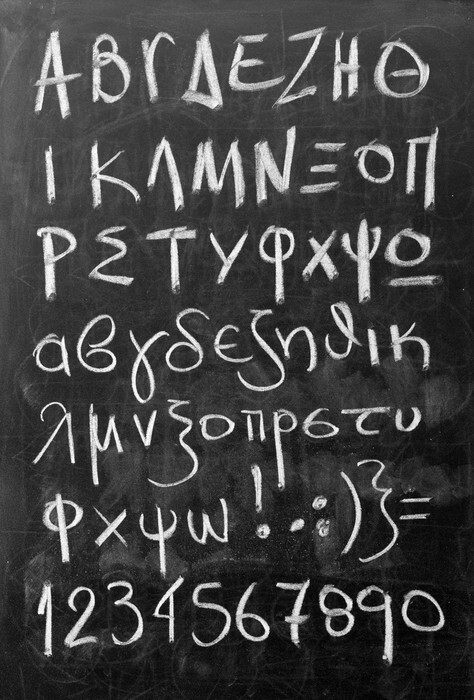 ΑΒΓΔΕΖΗΘ
ΙΚΛΜΝΞΟΠ
ΡΣΤΥΦΧΨΩ
αβγδεζηθικ
λμνξοπρςτυ
φχψω!.-:)ξ=
1234567890